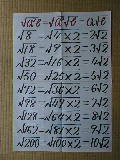 √a²b = √a²√b = a√b
√8 = √4×2 = 2√2
√18 = √9×2 = 3√2
√32 = √16×2 = 4√2
√50 = √25×2 = 5√2
√72 = √36×2 = 6√2
√98 = √49×2 = 7√2
√128 = √64×2 = 8√2
√162 = √81×2 = 9√2
√200 = √100×2 = 10√2